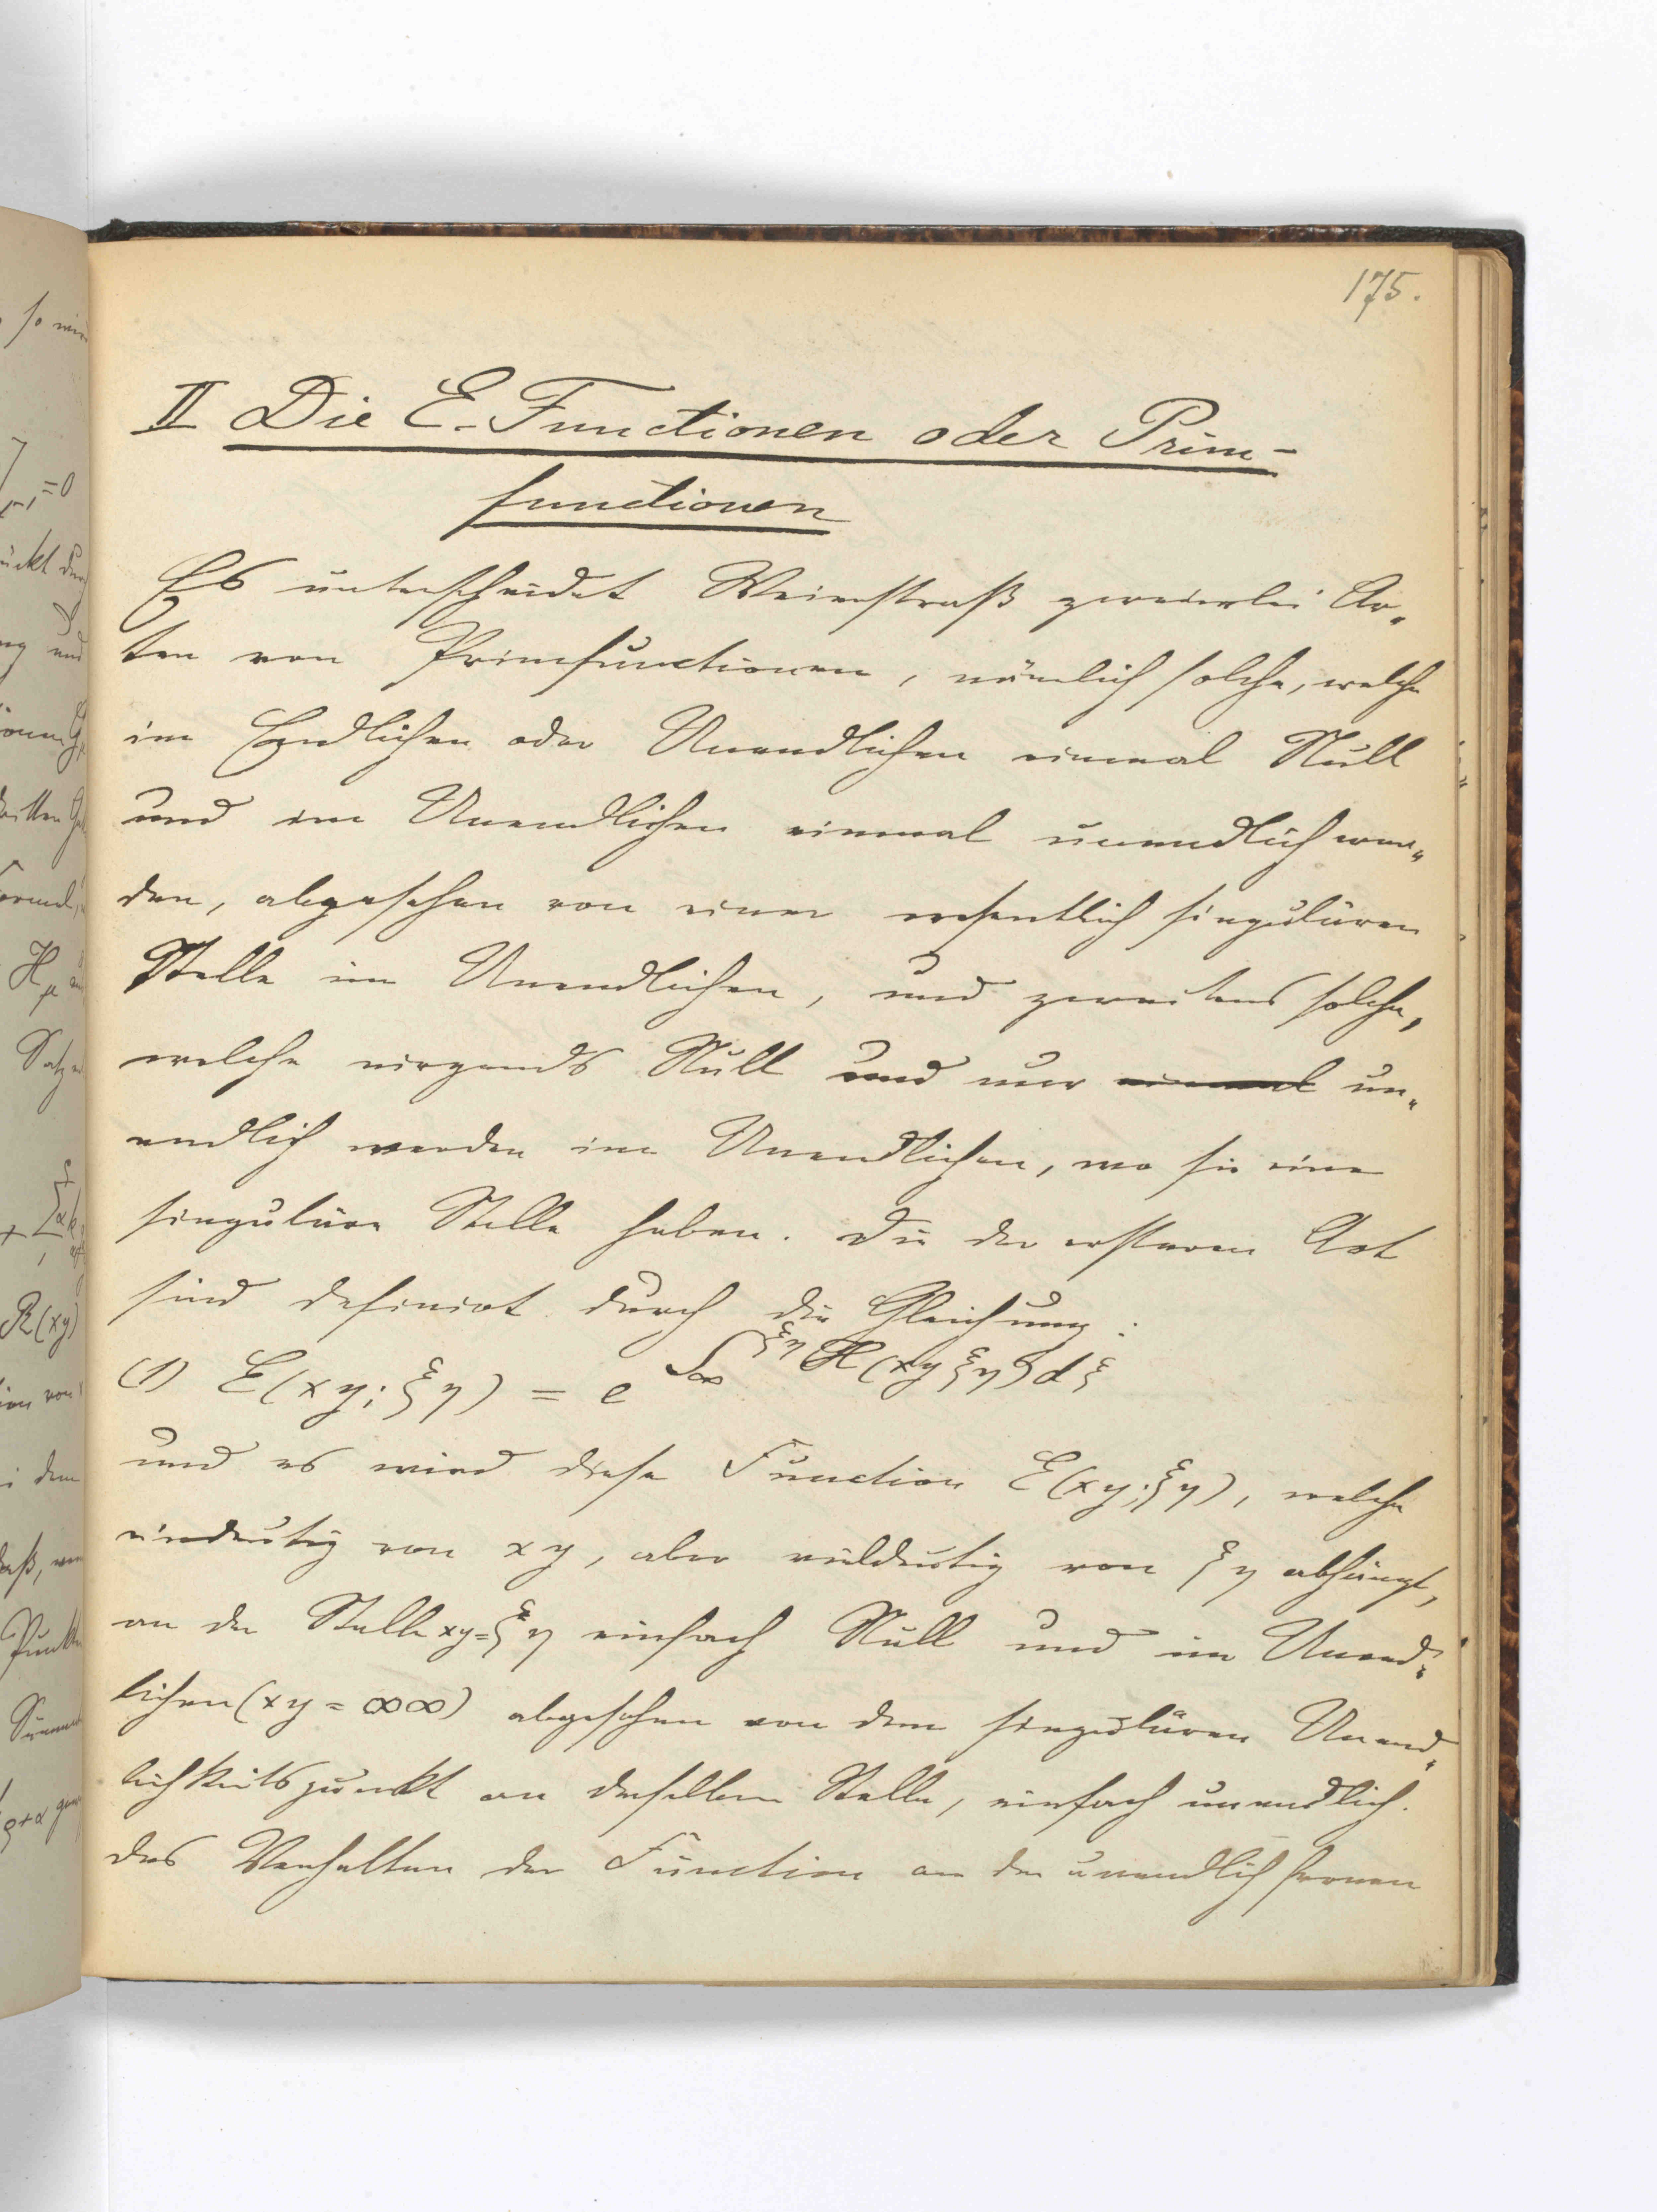 175.
II Die E-Functionen oder Prim-
functionen
Es unterscheidet Weierstraß zweierlei Ar-
ten von Primfunctionen, nämlich solche, welche
im Endlichen oder Unendlichen einmal Null
und im Unendlichen einmal unendlich wer-
den, abgesehen von einer wesentlich singulären
Stelle im Unendlichen, und zweitens solche,
welche nirgends Null und nur einmal un-
endlich werden im Unendlichen, wo sie eine
singuläre Stelle haben. Die der ersteren Art
sind definirt durch die Gleichung:
(1) E(xy; ξη) = e^{∫_∞^{ξη} H(xy ξη) dξ}
und es wird diese Function E(xy; ξη), welche
eindeutig von xy, aber vieldeutig von ξη abhängt,
an der Stelle xy=ξη einfach Null und im Unend-
lichen (xy = ∞∞) abgesehen von dem singulären Unend-
lichkeitspunkt an derselben Stelle, einfach unendlich.
Das Verhalten der Function an der unendlich fernen